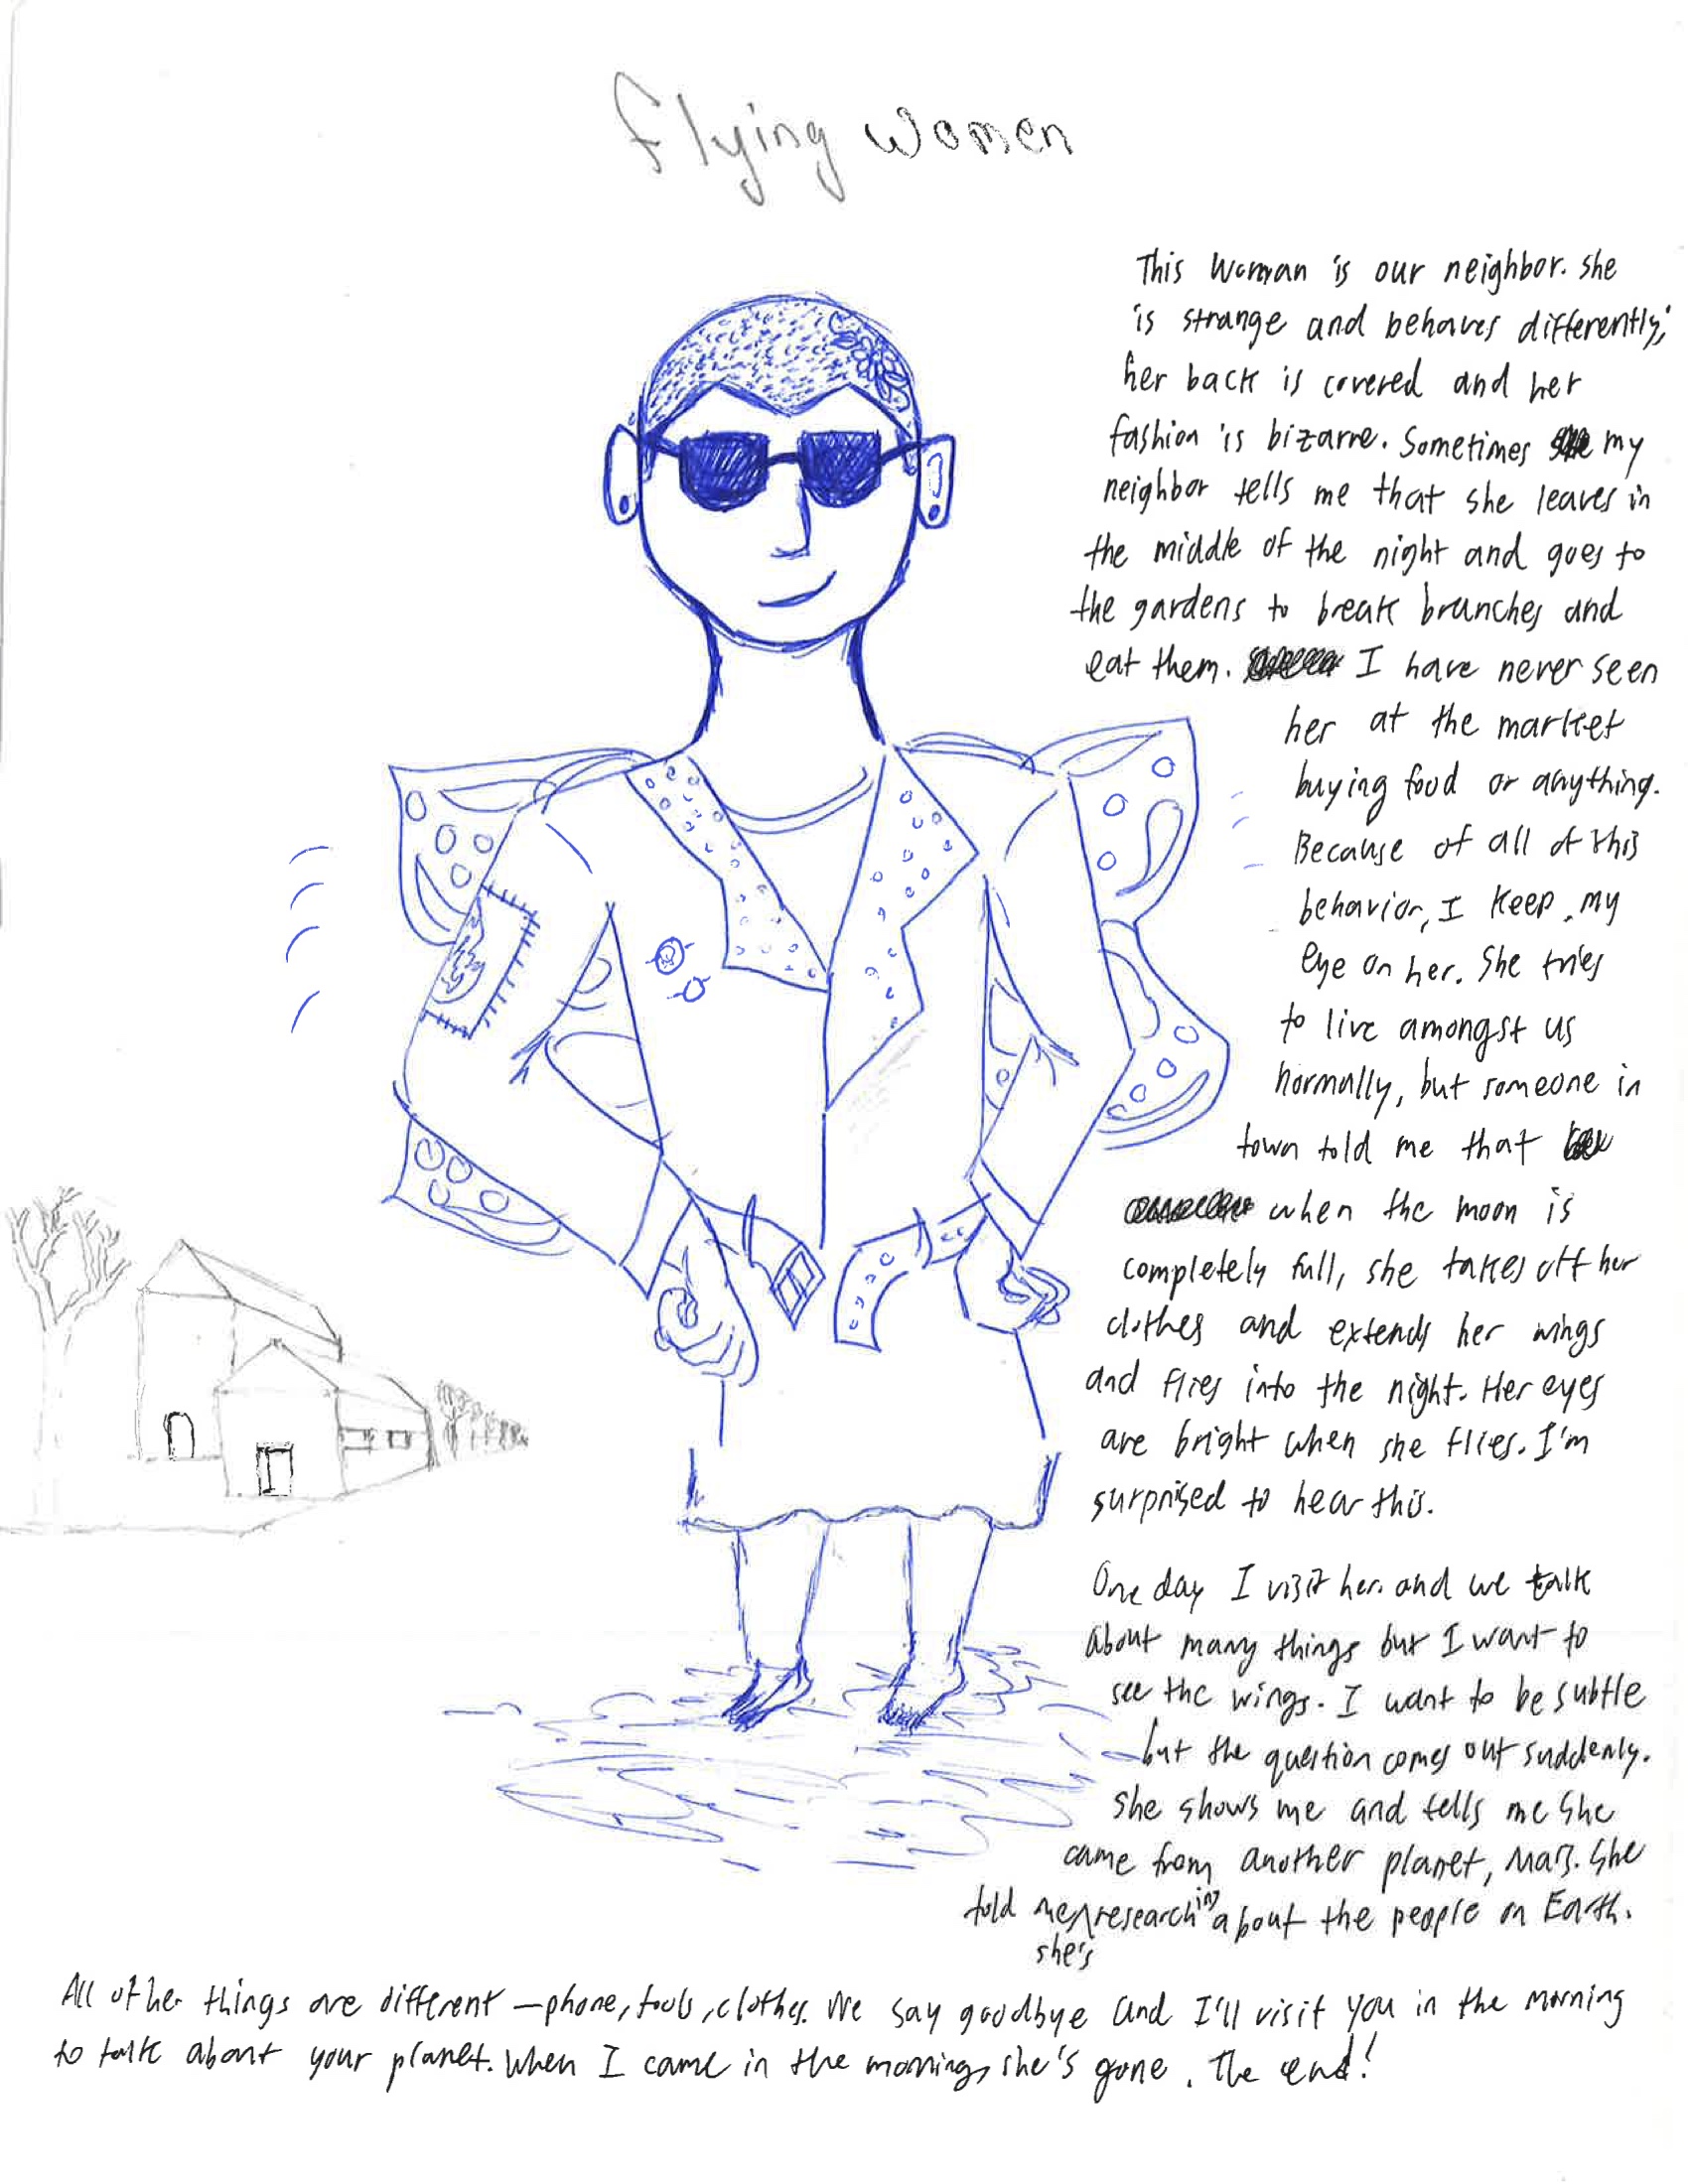 Flying Women
This Woman is our neighbor. she
is strange and behaves differently;
her back is covered and her
fashion is bizarre. Sometimes my
neighbor tells me that she leaves in
the middle of the night and goes to
the gardens to break branches and
eat them. I have never seen
her at the market
buying food or anything.
Because of all of this
behavior, I keep my
eye on her. She tries
to live amongst us
normally, but someone in
town told me that
when the moon is
completely full, she takes off her
clothes and extends her wings
and flies into the night. Her eyes
are bright when she flies. I'm
surprised to hear this.
One day I visit her. and we talk
about many things but I want to
see the wings. I want to be subtle
but the question comes out suddenly.
She shows me and tells me she
came from another planet, Mars. She
told me she's researching about the people on Earth.
All other things are different – phone, tools, clothes. We say goodbye and I'll visit you in the morning
to talk about your planet. When I came in the morning, she's gone. The end!